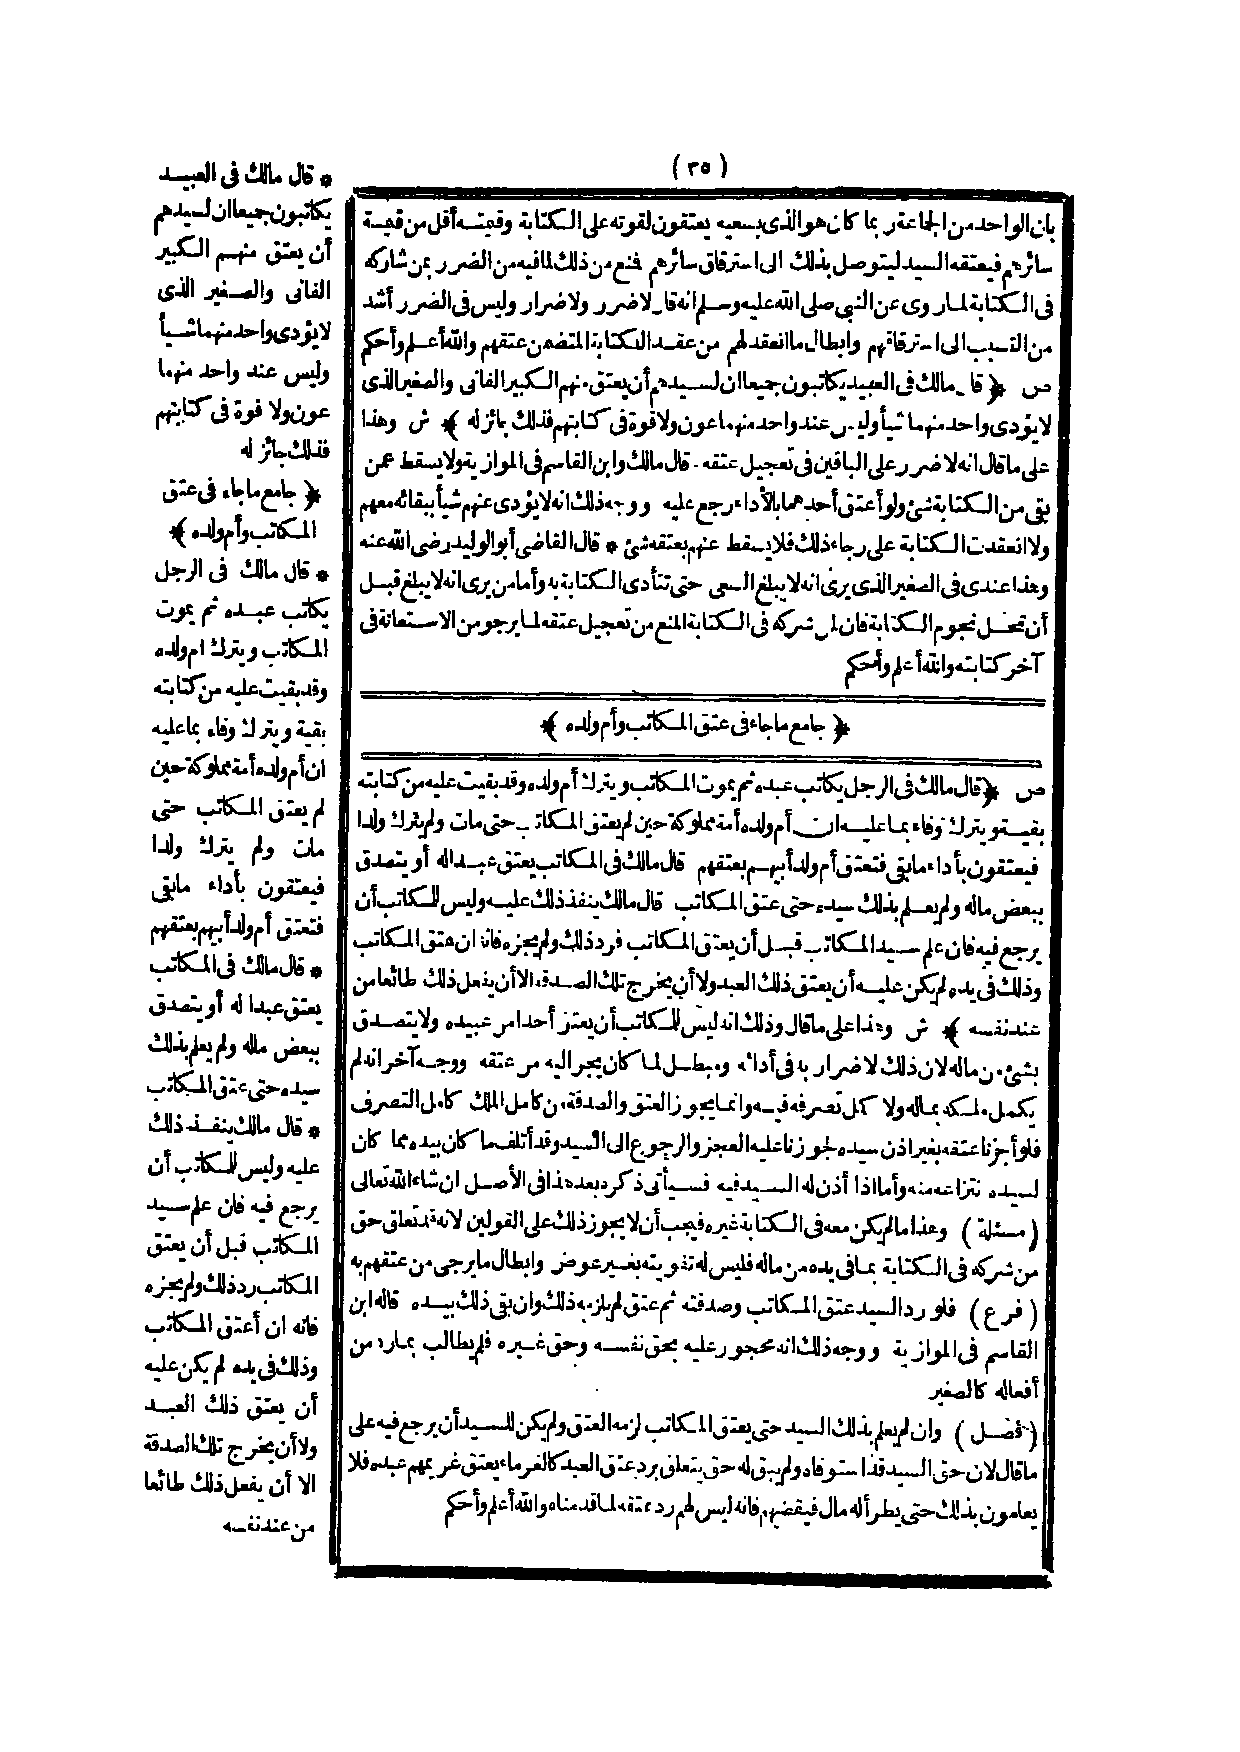 (٣٥)
بان الواحد من الجماعة ربما كان هو الذي بسعيه يعتقون لقوته على الكتابة وقيمته أقل من قيمة
سائرهم فيعتقه السيد ليتوصل بذلك الى استرقاق سائرهم فمنع من ذلك لما فيه من الضرر بمن شاركه
فى الكتابة لما روى عن النبي صلى الله عليه وسلم انه قال لا ضرر ولا ضرار وليس في الضرر أشد
من التسبب الى استرقاقهم وابطال ما انعقد لهم من عقد الكتابة المتضمن عتقهم والله أعلم وأحكم
ص ﴿ قال مالك فى العبيد يكاتبون جميعا ان لسيدهم أن يعتق منهم الكبير الفانى والصغير الذى
لا يؤدى واحد منهما شيأ وليس عند واحد منهما عون ولا قوة فى كتابتهم فذلك جائز له ﴾ ش وهذا
على ما قال انه لا ضرر على الباقين فى تعجيل عتقه . قال مالك وابن القاسم فى الموازية ولا يسقط عمن
بقى من الكتابة شئ ولو أعتق أحدهما بالأداء رجع عليه ووجه ذلك انه لا يؤدى عنهم شيأ ببقائه معهم
ولا انعقدت الكتابة على رجاء ذلك فلا يسقط عنهم بعتقه شئ * قال القاضى أبو الوليد رضى الله عنه
وهذا عندى فى الصغير الذى يرى انه لا يبلغ السعى حتى تتأدى الكتابة به وأما من يرى انه لا يبلغ قبل
أن تحل نجوم الكتابة فان لمن شركه فى الكتابة المنع من تعجيل عتقه لما يرجو من الاستعانة فى
آخر كتابته والله أعلم وأحكم
﴿ جامع ما جاء فى عتق المكاتب وأم ولده ﴾
ص ﴿ قال مالك فى الرجل يكاتب عبده ثم يموت المكاتب ويترك أم ولده وقد بقيت عليه من كتابته
بقية ويترك وفاء بما عليه ان أم ولده أمة مملوكة حين لم يعتق المكاتب حتى مات ولم يترك ولدا
فيعتقون بأداء ما بقى فتعتق أم ولد أبيهم بعتقهم قال مالك فى المكاتب يعتق عبدا له أو يتصدق
ببعض ماله ولم يعلم بذلك سيده حتى عتق المكاتب قال مالك ينفذ ذلك عليه وليس للمكاتب أن
يرجع فيه فان علم سيد المكاتب قبل أن يعتق المكاتب فرد ذلك ولم يجزه فانه ان عتق المكاتب
وذلك فى يده لم يكن عليه أن يعتق ذلك العبد ولا أن يخرج تلك الصدقة الا أن يفعل ذلك طائعا من
عند نفسه ﴾ ش وهذا على ما قال وذلك انه ليس للمكاتب أن يعتق أحدا من عبيده ولا يتصدق
بشئ من ماله لان ذلك لاضرار به فى أدائه ومبطل لما كان يجر اليه من عتقه ووجه آخر انه لم
يكمل ملكه بماله ولا كمل تصرفه فيه وانما يجوز العتق والصدقة من كامل الملك كامل التصرف
فلو أجزنا عتقه بغير اذن سيده لجوزنا عليه العجز والرجوع الى السيد وقد أتلف ما كان بيده مما كان
لسيده انتزاعه منه وأما اذا أذن له السيد فيه فسيأتى ذكره بعد هذا فى الأصل ان شاء الله تعالى
( مسئلة ) وهذا ما لم يكن معه فى الكتابة غيره فيجب أن لا يجوز ذلك على القولين لانه قد تعلق حق
من شركه فى الكتابة بما فى يده من ماله فليس له تفويته بغير عوض وابطال ما يرجى من عتقهم به
( فرع ) فلو رد السيد عتق المكاتب وصدقته ثم عتق لم يلزمه ذلك وان بقى ذلك بيده قاله ابن
القاسم فى الموازية ووجه ذلك انه محجور عليه بحق نفسه وحق غيره فلم يطالب بما رد من
أفعاله كالصغير
( فصل ) وان لم يعلم بذلك السيد حتى يعتق المكاتب لزمه العتق ولم يكن للسيد أن يرجع فيه على
ما قال لان حق السيد قد استوفاه ولم يبق له حق يتعلق برد عتق العبد كالغرماء يعتق غريمهم عبده فلا
يعلمون بذلك حتى يطرأ له مال فيقضهم فانه ليس لهم رد عتقه لما قدمناه والله أعلم وأحكم
* قال مالك فى العبيد
يكاتبون جميعا ان لسيدهم
أن يعتق منهم الكبير
الفانى والصغير الذى
لا يؤدى واحد منهما شيأ
وليس عند واحد منهما
عون ولا قوة فى كتابتهم
فذلك جائز له
﴿ جامع ما جاء فى عتق
المكاتب وأم ولده ﴾
* قال مالك فى الرجل
يكاتب عبده ثم يموت
المكاتب ويترك ام ولده
وقد بقيت عليه من كتابته
بقية ويترك وفاء بما عليه
ان أم ولده أمة مملوكة حين
لم يعتق المكاتب حتى
مات ولم يترك ولدا
فيعتقون بأداء ما بقى
فتعتق أم ولد أبيهم بعتقهم
* قال مالك فى المكاتب
يعتق عبدا له أو يتصدق
ببعض ماله ولم يعلم بذلك
سيده حتى عتق المكاتب
* قال مالك ينفذ ذلك
عليه وليس للمكاتب أن
يرجع فيه فان علم سيد
المكاتب قبل أن يعتق
المكاتب رد ذلك ولم يجزه
فانه ان أعتق المكاتب
وذلك فى يده لم يكن عليه
أن يعتق ذلك العبد
ولا أن يخرج تلك الصدقة
الا أن يفعل ذلك طائعا
من عند نفسه